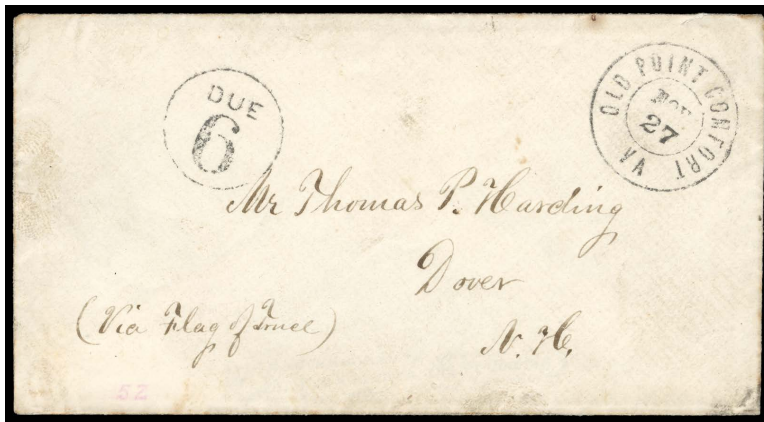 DUE
6
OLD POINT COMFORT VA
NOV
27
Mr Thomas P. Harding
Dover
N. H.
(Via Flag of Truce)
52